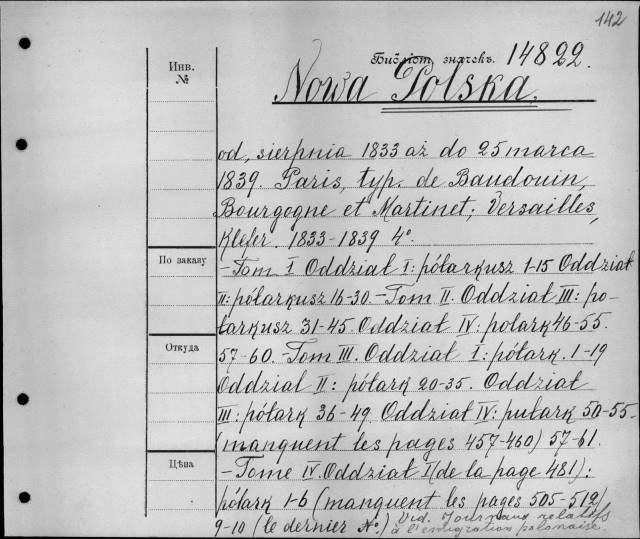 142
Библіот. значекъ. 14822.
Инв.
№
Nowa Polska.
od, sierpnia 1833 aż do 25 marca
1839. Paris, typ. de Baudouin,
Bourgogne et Martinet; Versailles,
Kléfer. 1833-1839 4°.
По заказу
-Tom I Oddział I: półarkusz 1-15 Oddział
II: półarkusz 16-30.-Tom II. Oddział III: po-
łarkusz 31-45. Oddział IV: polark 46-55.
Откуда
57-60.-Tom III. Oddział I: półark. 1-19
Oddział II: półark 20-35. Oddział
III: półark 36-49. Oddział IV: pułark 50-55.
(manquent les pages 457-460) 57-61.
Цѣна
-Tome IV. Oddział I (de la page 481):
półark 1-6 (manquent les pages 505-512)
9-10 (le dernier №.) Vid. Journaux relatifs
à l'émigration polonaise.